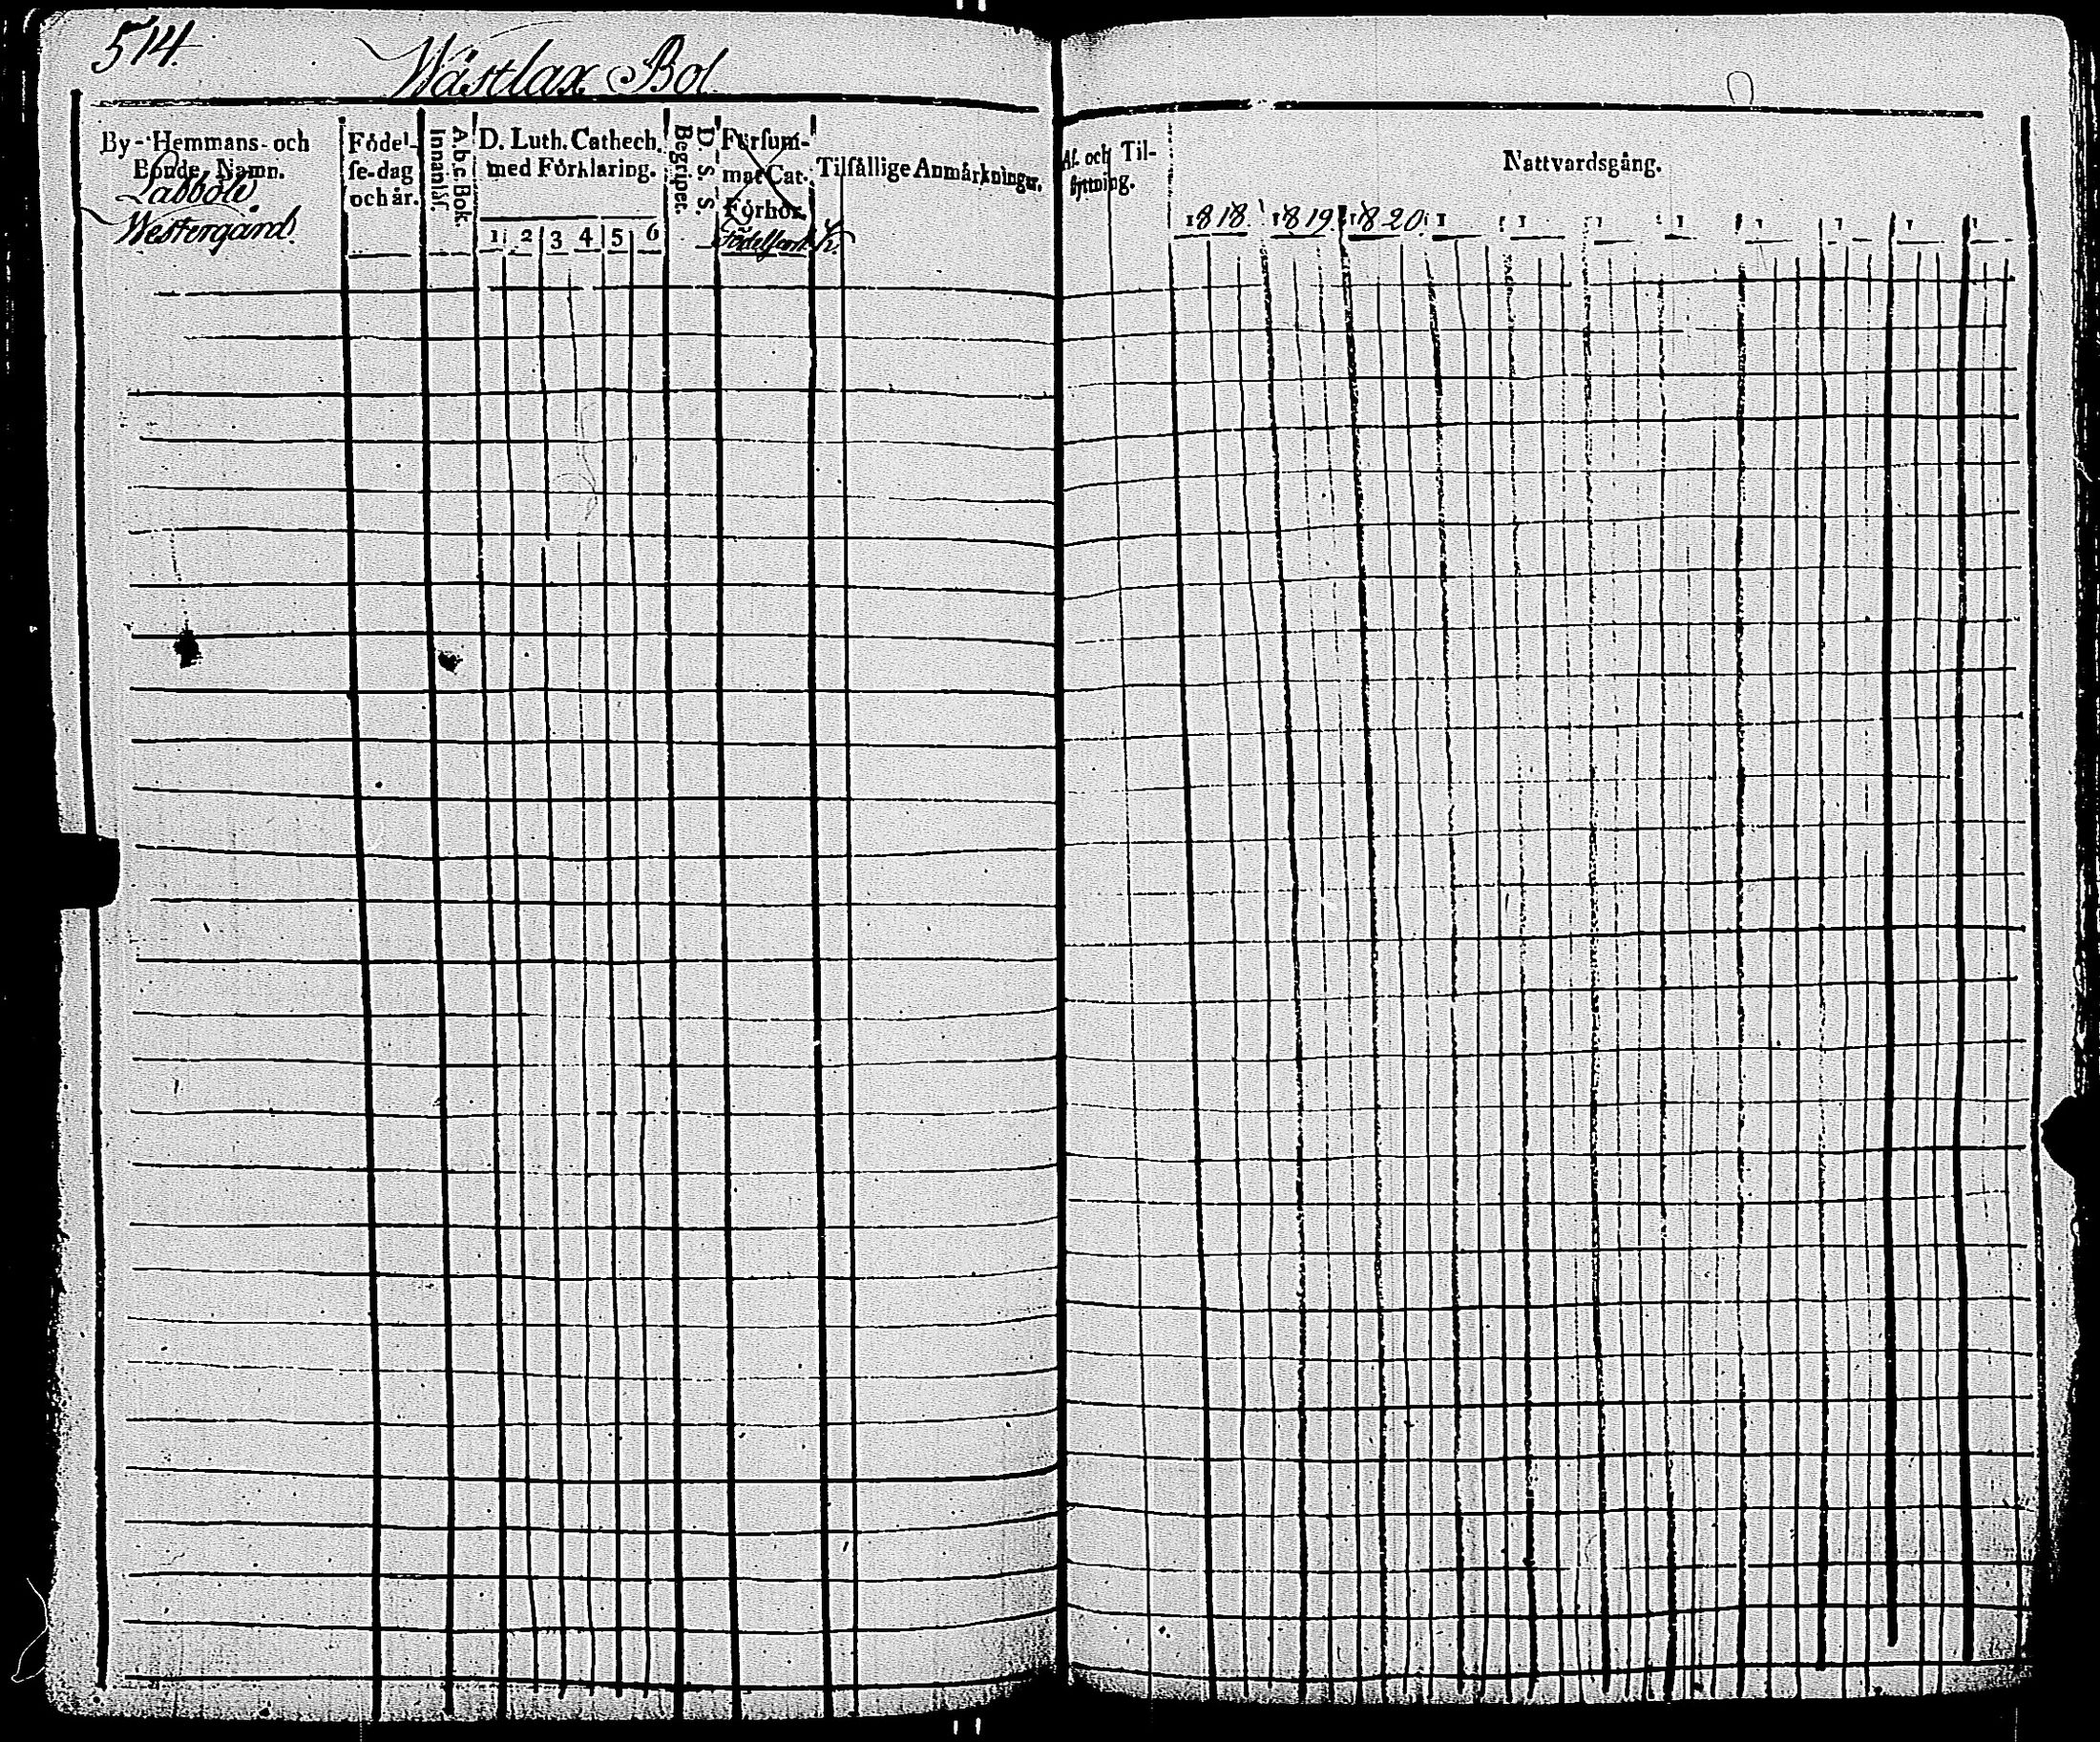 514.
Wästlax Bol
By-Hemmans- och
Bonde Namn.
Labböle
Westergård.
Födel-
se-dag
och år.
A. b. c. Bok.
Innanläs.
D. Luth. Cathech.
med Förklaring.
1 2 3 4 5 6
D. S. S.
Begriper.
Försum-
mat Cat.
Förhör.
Tilfällige Anmärkningar.
Af- och Til-
flyttning.
Nattvardsgång.
1818. 1819. 1820. 1 1 1 1 1 1 1 1